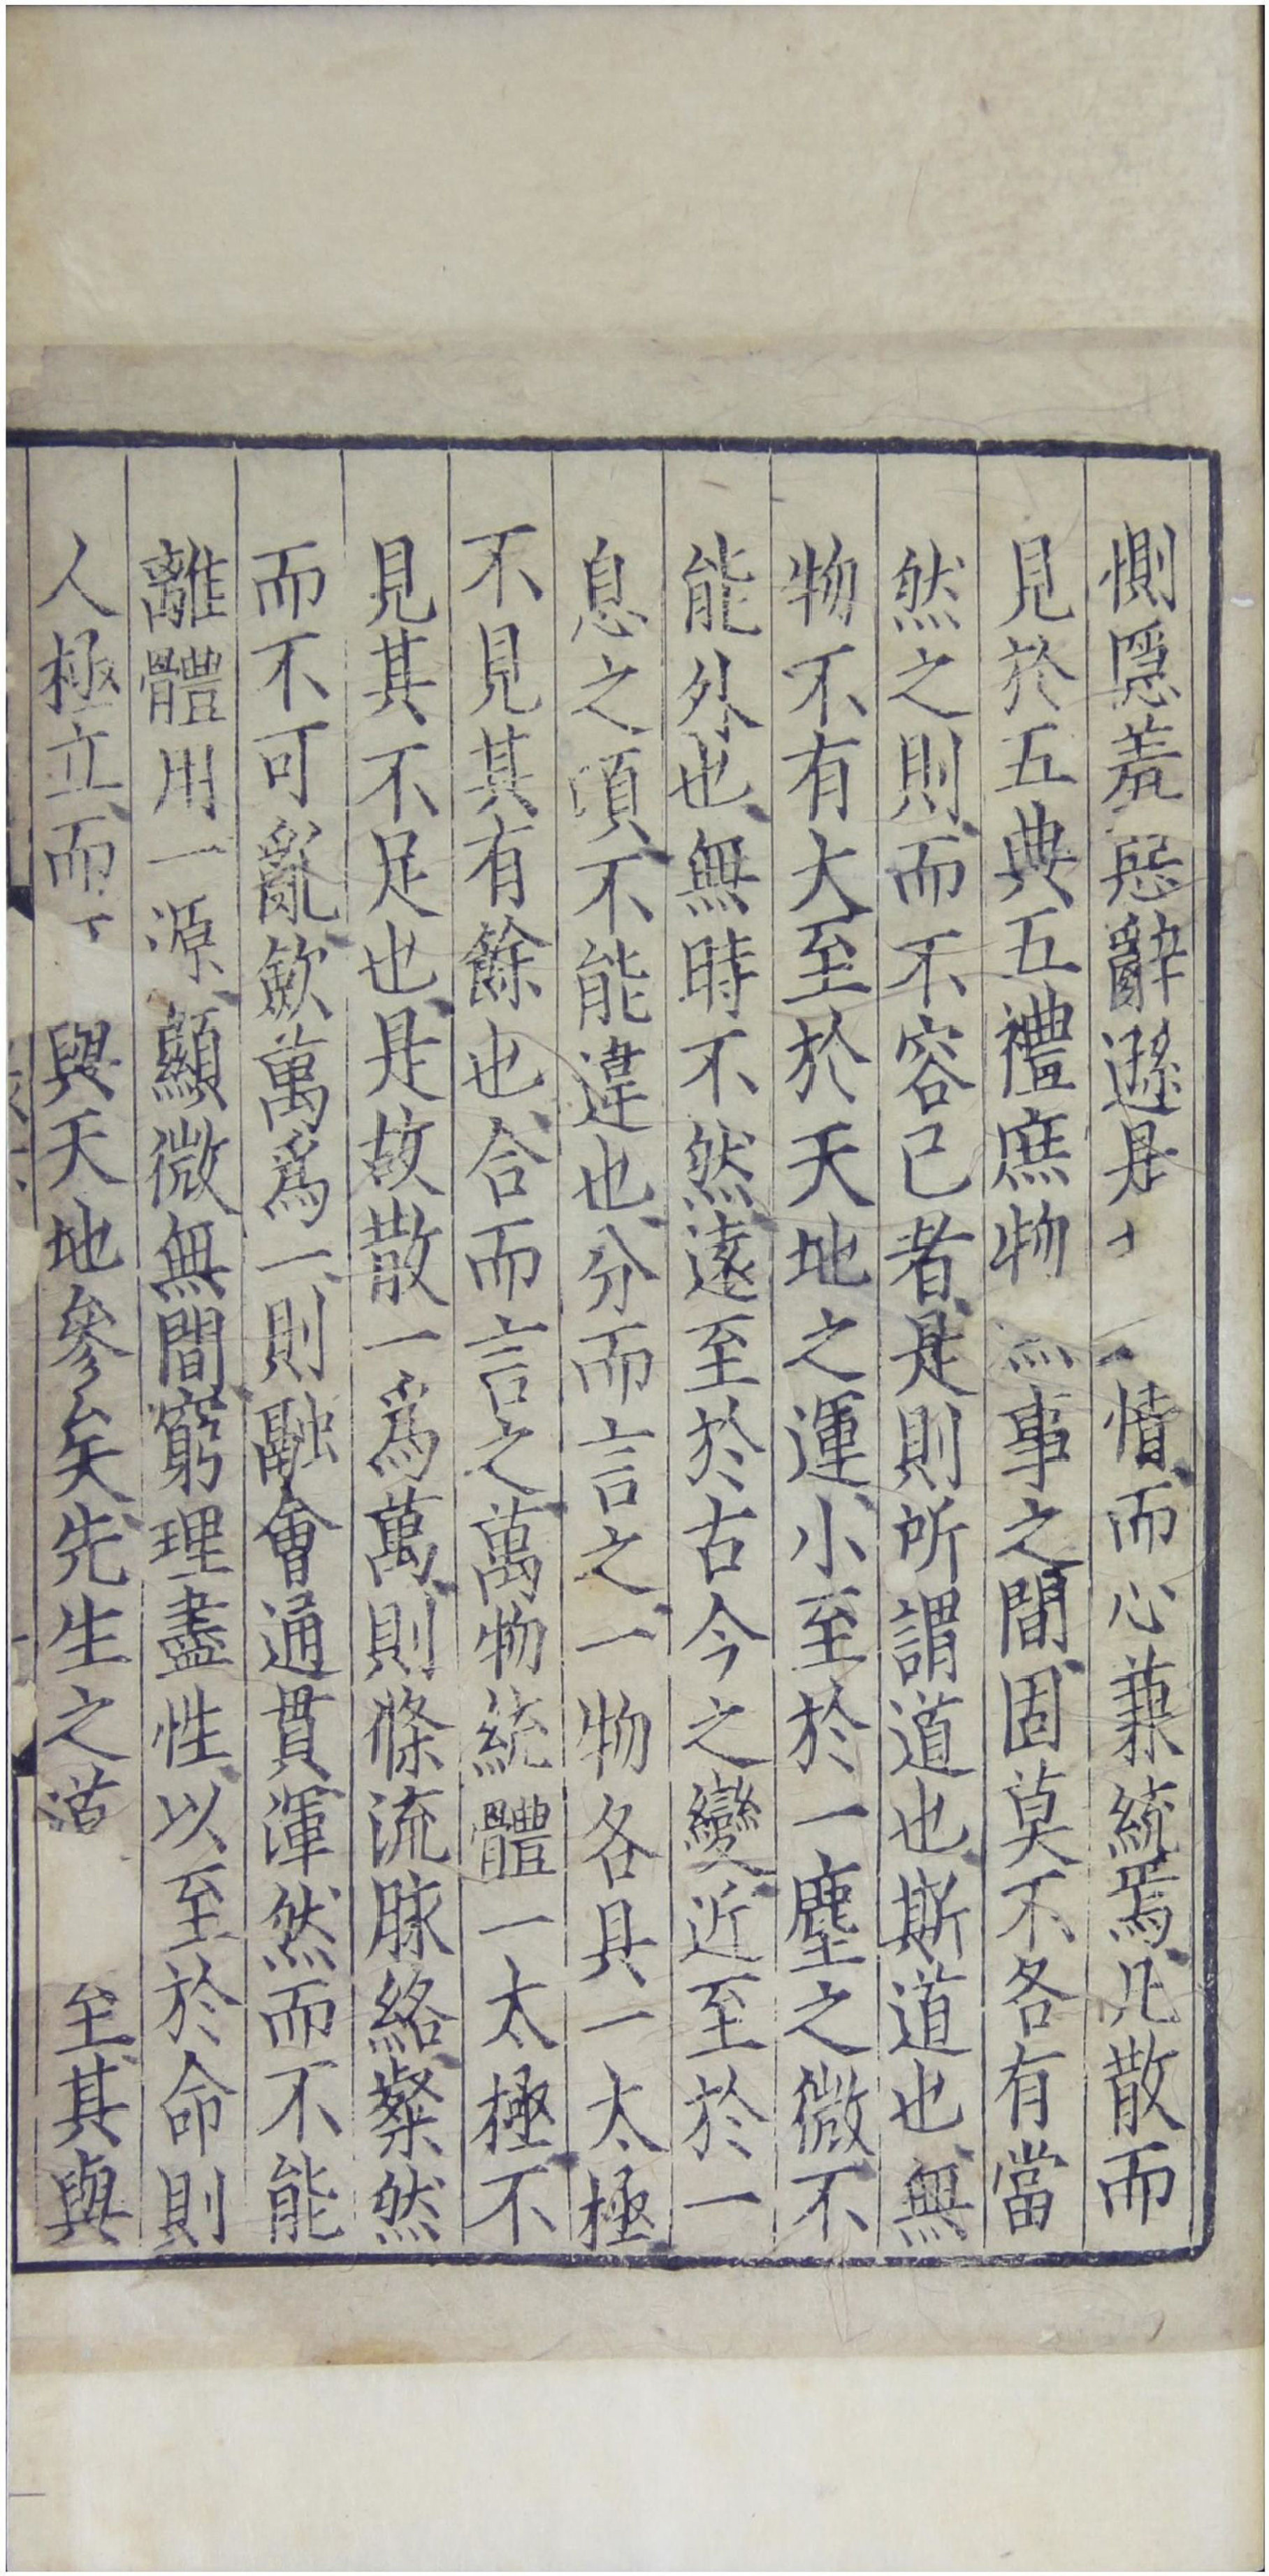 惻隱羞惡辭遜是情而心兼統焉凡散而
見於五典五禮庶物事之間固莫不各有當
然之則而不容已者是則所謂道也斯道也無
物不有大至於天地之運小至於一塵之微不
能外也無時不然遠至於古今之變近至於一
息之頃不能違也分而言之一物各具一太極
不見其有餘也合而言之萬物統體一太極不
見其不足也是故散一爲萬則條流脉絡粲然
而不可亂歛萬爲一則融會通貫渾然而不能
離體用一源顯微無間窮理盡性以至於命則
人極立而與天地參矣先生之至其與